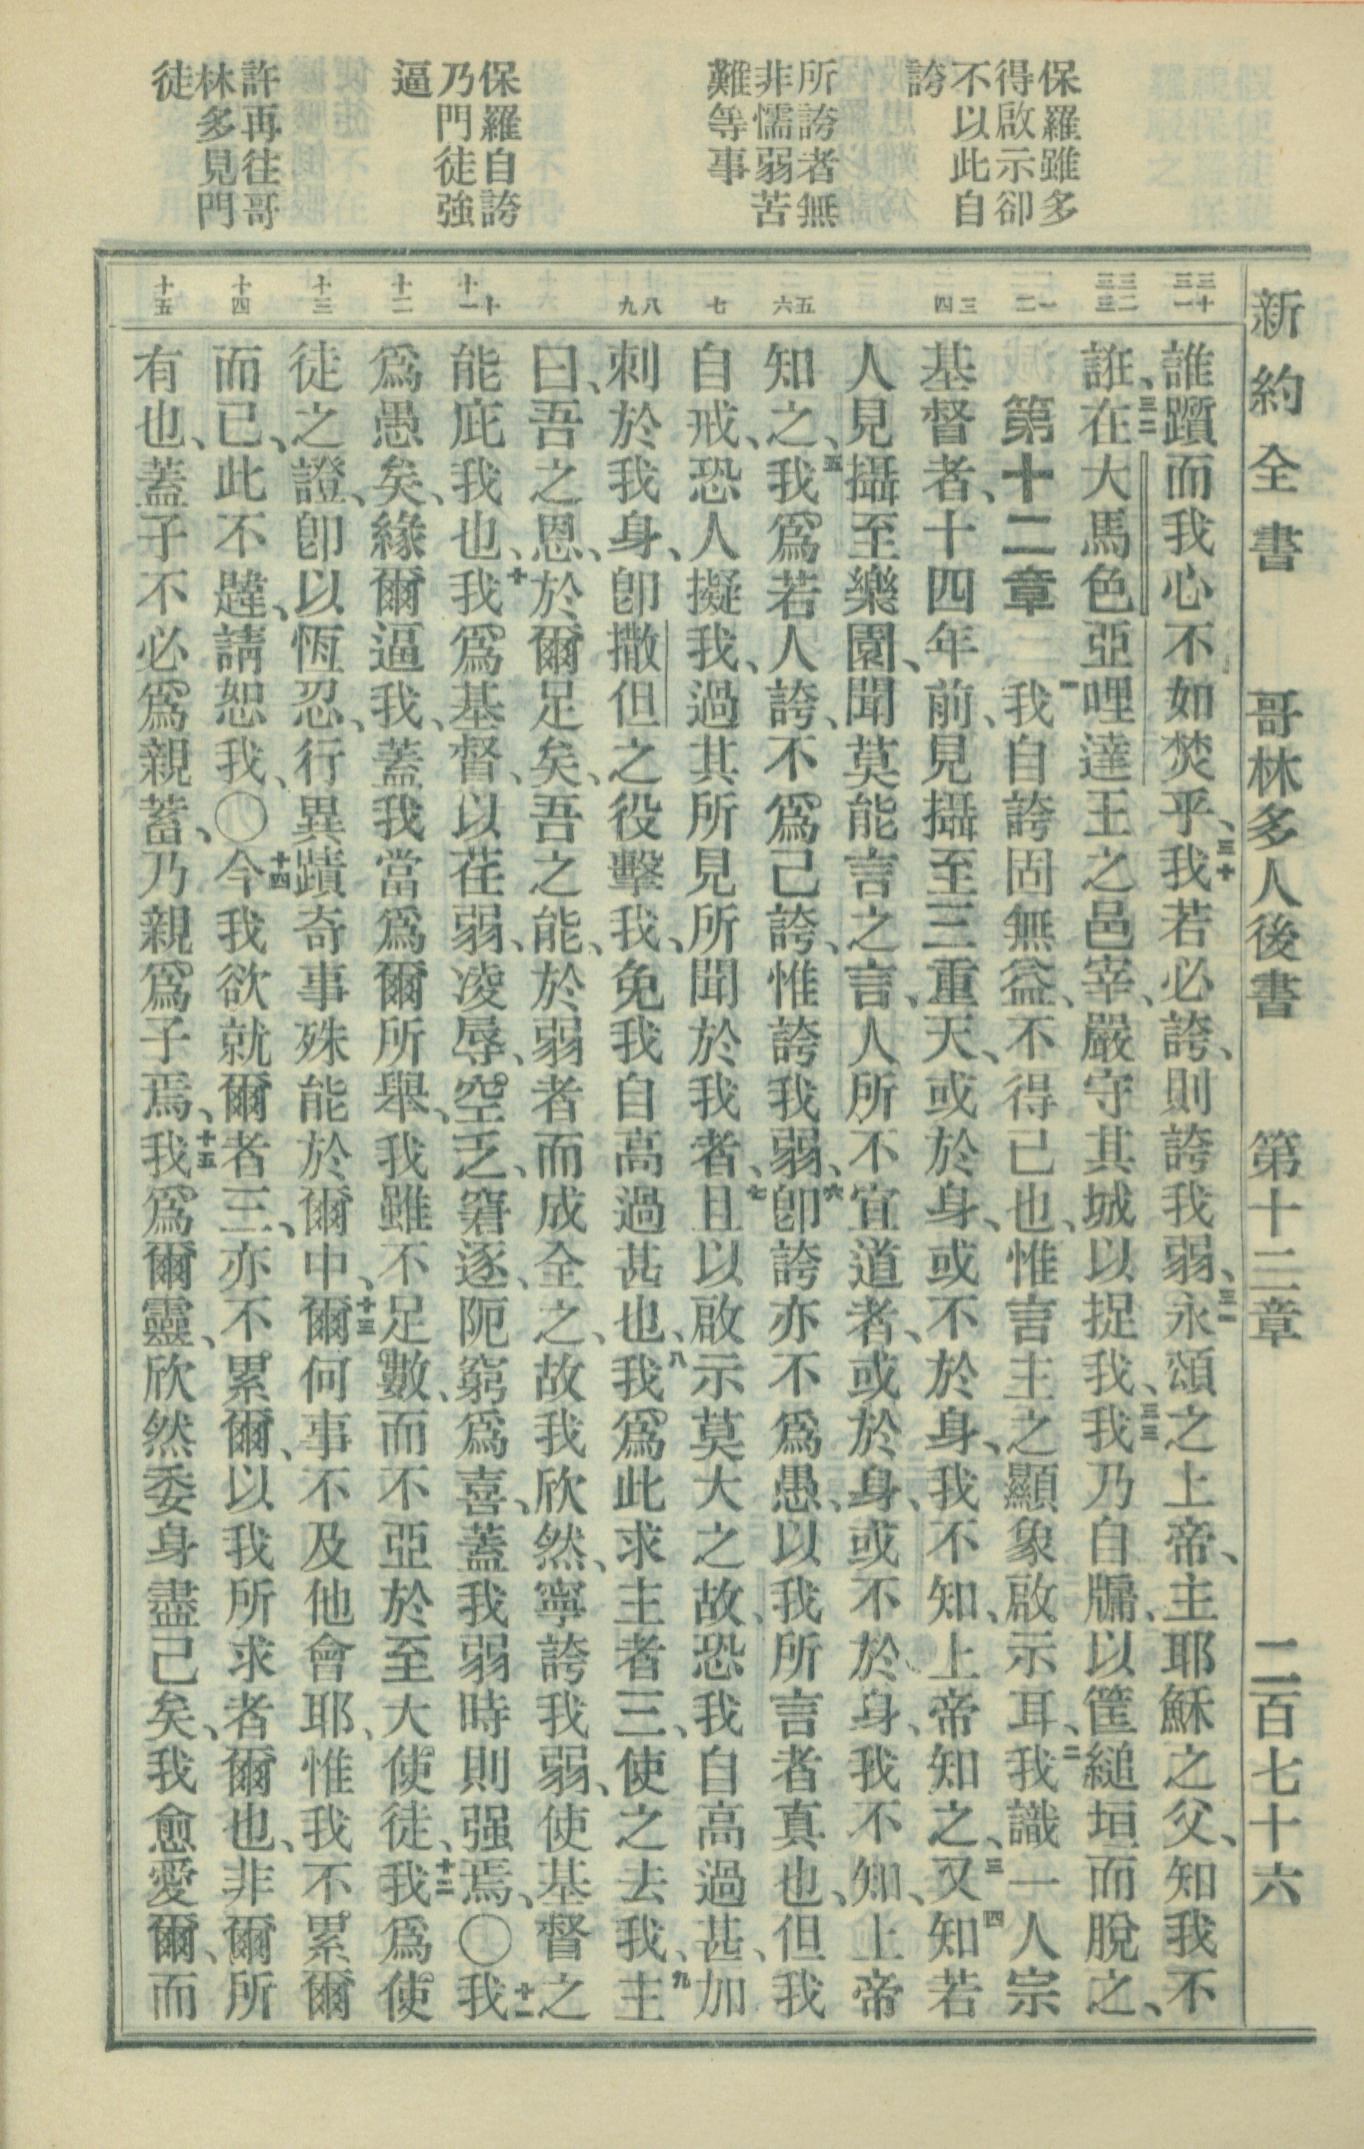 新約全書 哥林多人後書 第十二章 二百七十六
保羅雖多
得啟示卻
不以此自
誇
所誇者無
非懦弱苦
難等事
保羅自誇
乃門徒強
逼
許再往哥
林多見門
徒
三十 三一
三二 三三
一 二
三 四
五 六
七
八 九
十 十一
十二
十三
十四
十五
誰躓而我心不如焚乎、三十我若必誇、則誇我弱、三一永頌之上帝、主耶穌之父、知我不
誑、三二在大馬色亞哩達王之邑宰、嚴守其城以捉我、三三我乃自牖、以筐縋垣而脫之、
第十二章 一我自誇固無益、不得已也、惟言主之顯象啟示耳、二我識一人宗
基督者、十四年前、見攝至三重天、或於身、或不於身、我不知、上帝知之、三又四知若
人見攝至樂園、聞莫能言之言、人所不宜道者、或於身、或不於身、我不知、上帝
知之、五我爲若人誇、不爲己誇、惟誇我弱、六卽誇亦不爲愚、以我所言者真也、但我
自戒、恐人擬我、過其所見所聞於我者、七且以啟示莫大之故、恐我自高過甚、加
刺於我身、卽撒但之役擊我、免我自高過甚也、八我爲此求主者三、使之去我、九主
曰、吾之恩、於爾足矣、吾之能、於弱者而成全之、故我欣然、寧誇我弱、使基督之
能庇我也、十我爲基督、以荏弱、凌辱、空乏、窘逐、阨窮爲喜、蓋我弱時則强焉、〇十一我
爲愚矣、緣爾逼我、蓋我當爲爾所舉、我雖不足數、而不亞於至大使徒、十二我爲使
徒之證、卽以恆忍、行異蹟奇事殊能於爾中、十三爾何事不及他會耶、惟我不累爾
而已、此不韙、請恕我、〇十四今我欲就爾者三、亦不累爾、以我所求者爾也、非爾所
有也、蓋子不必爲親蓄、乃親爲子焉、十五我爲爾靈、欣然委身盡己矣、我愈愛爾、而